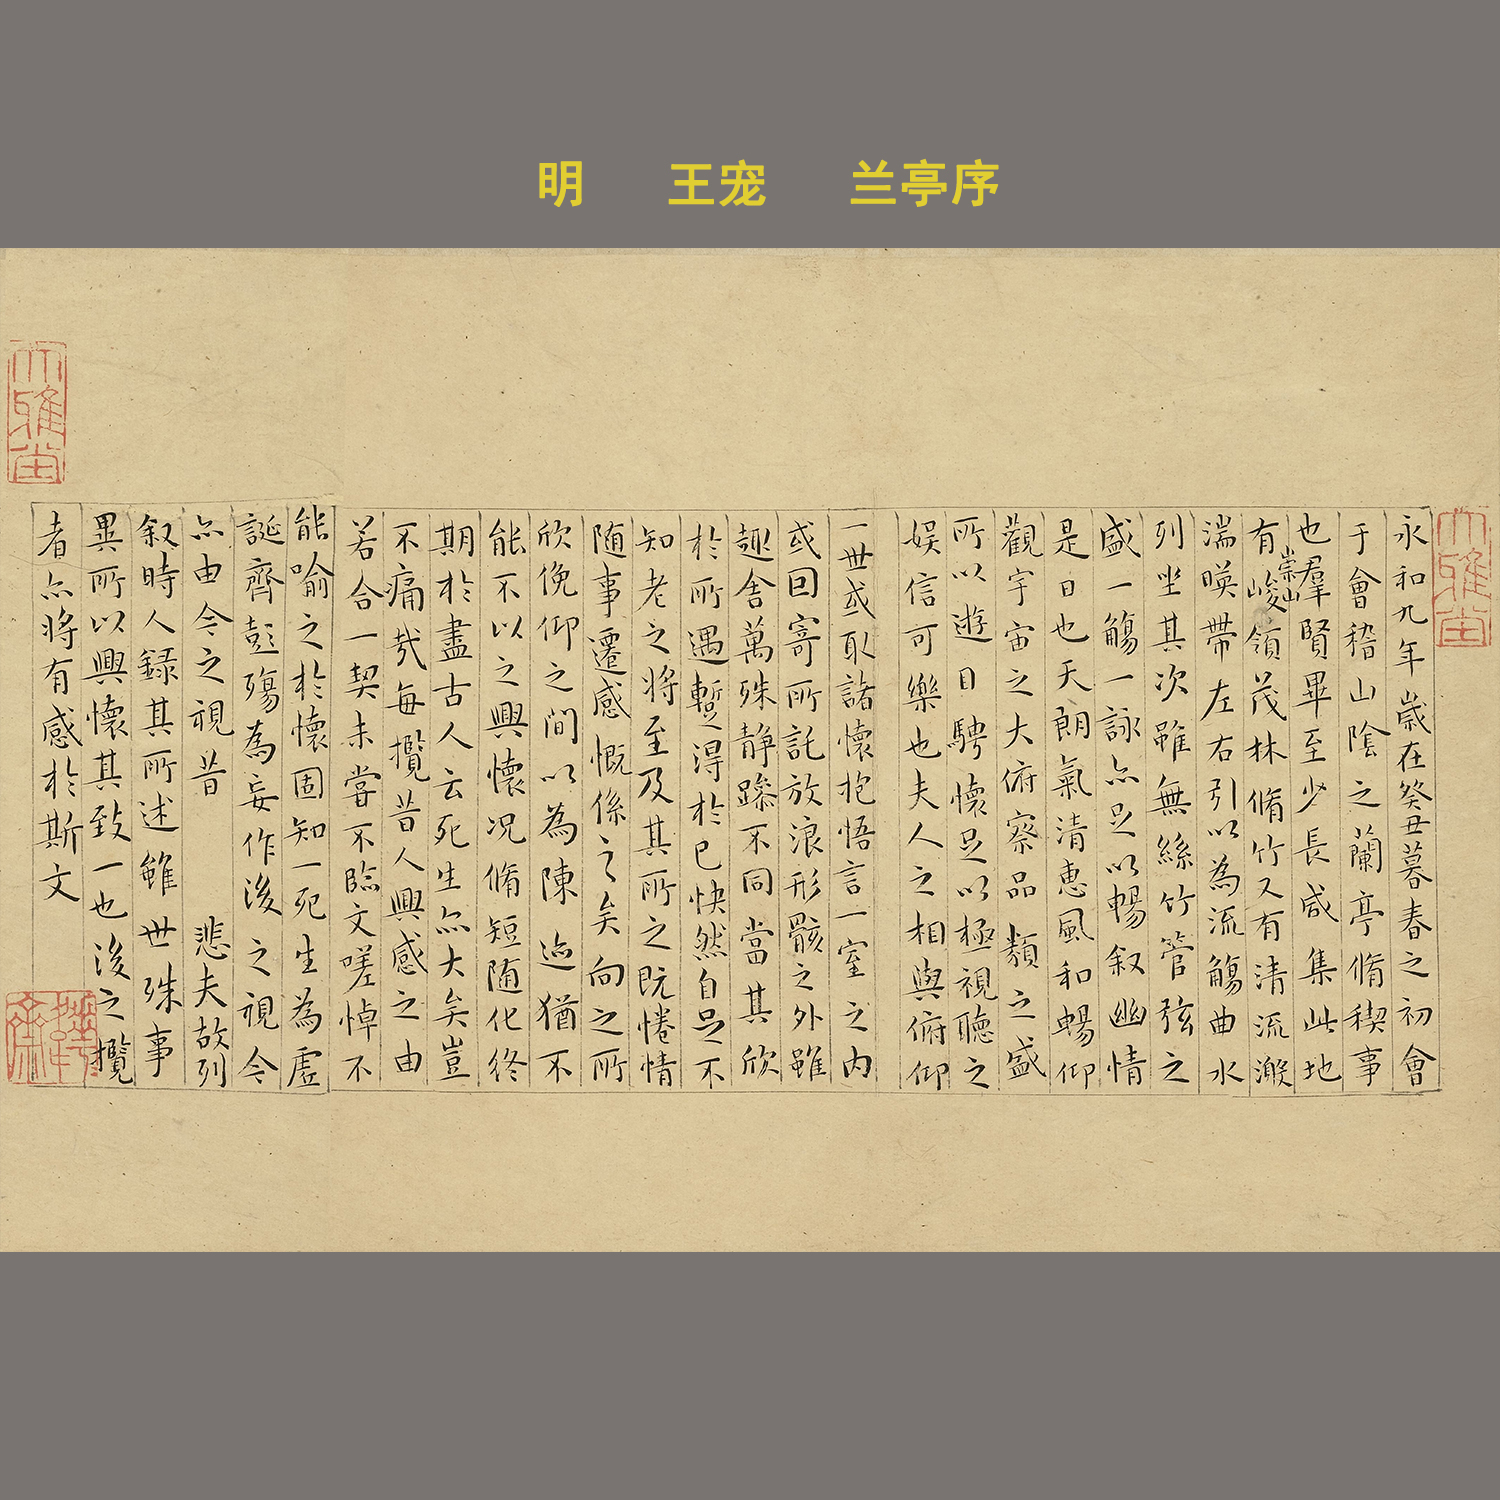 明 王宠 兰亭序
永和九年歲在癸丑暮春之初會
于會稽山陰之蘭亭脩稧事
也羣賢畢至少長咸集此地
有崇山峻領茂林脩竹又有清流激
湍暎帶左右引以為流觴曲水
列坐其次雖無絲竹管弦之
盛一觴一詠亦足以暢叙幽情
是日也天朗氣清惠風和暢仰
觀宇宙之大俯察品類之盛
所以遊目騁懷足以極視聽之
娱信可樂也夫人之相與俯仰
一世或取諸懷抱悟言一室之內
或因寄所託放浪形骸之外雖
趣舍萬殊静躁不同當其欣
於所遇蹔得於己快然自足不
知老之將至及其所之既惓情
随事遷感慨係之矣向之所
欣俛仰之間以為陳迹猶不
能不以之興懷况脩短随化終
期於盡古人云死生亦大矣豈
不痛哉每攬昔人興感之由
若合一契未嘗不臨文嗟悼不
能喻之於懷固知一死生為虛
誕齊彭殤為妄作後之視今
亦由今之視昔 悲夫故列
叙時人錄其所述雖世殊事
異所以興懷其致一也後之攬
者亦將有感於斯文
大雅堂
大雅堂